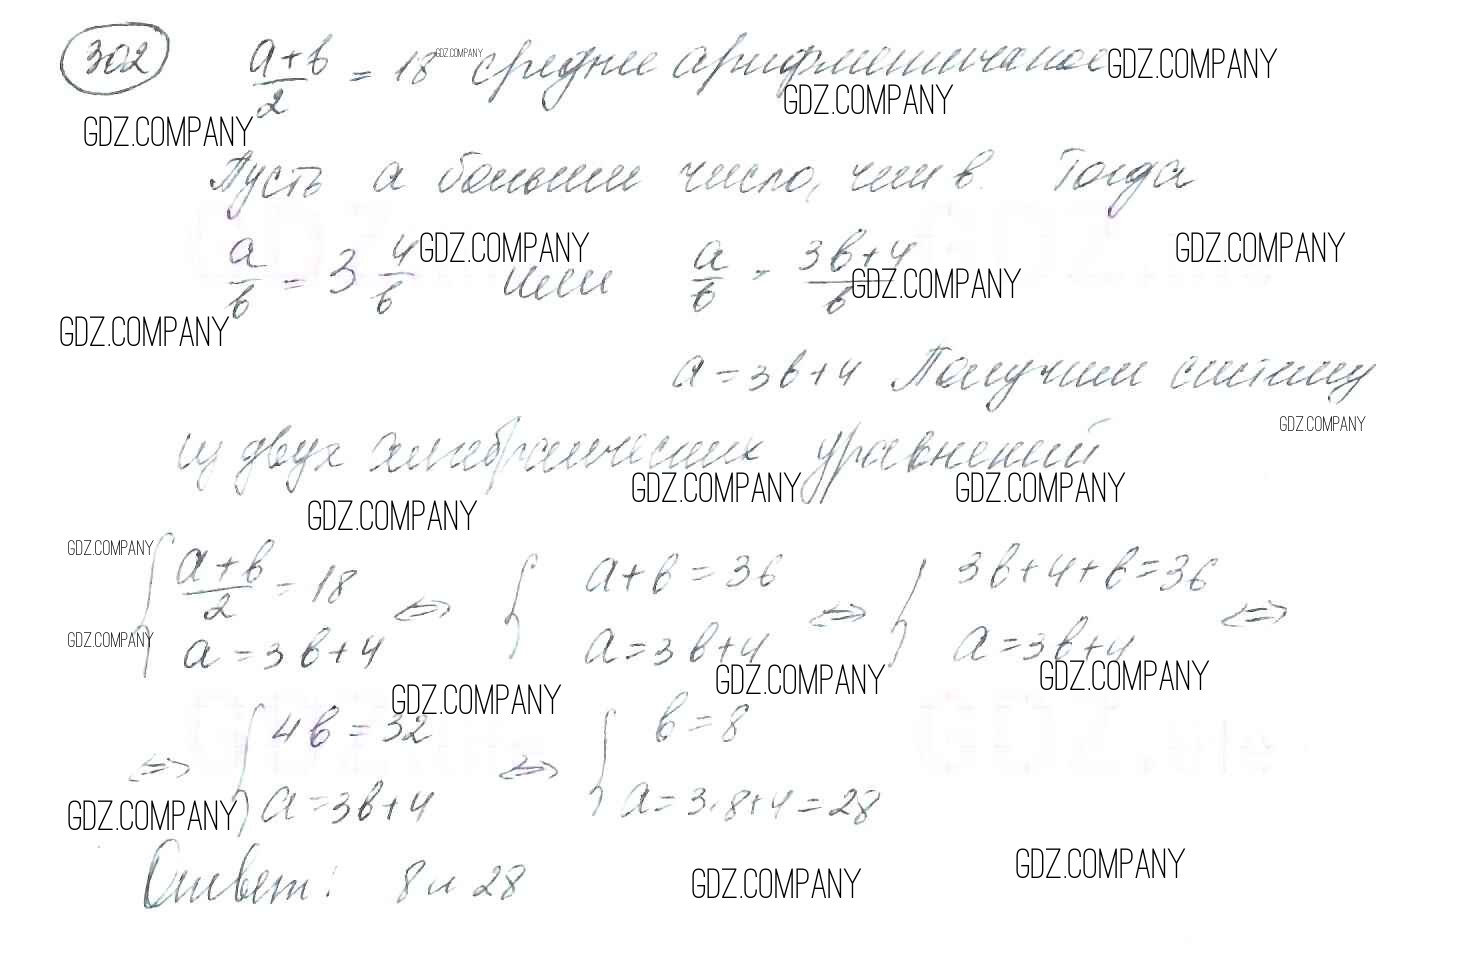 302 (a+b)/2 = 18 GDZ.COMPANY среднее арифметическое GDZ.COMPANY
GDZ.COMPANY
GDZ.COMPANY
Пусть a больши число, чем b. Тогда
a/b = 3 4/b GDZ.COMPANY или a/b = (3b+4)/b GDZ.COMPANY GDZ.COMPANY
GDZ.COMPANY
a = 3b+4 Получим систему
GDZ.COMPANY
из двух алгебраических уравнений
GDZ.COMPANY GDZ.COMPANY
GDZ.COMPANY
GDZ.COMPANY
{ (a+b)/2 = 18 ⇔ { a+b = 36 ⇔ { 3b+4+b=36 ⇔
GDZ.COMPANY
a = 3b+4 a=3b+4 a=3b+4
GDZ.COMPANY GDZ.COMPANY GDZ.COMPANY
⇔ { 4b = 32 ⇔ { b = 8
GDZ.COMPANY a=3b+4 a = 3·8+4 = 28
Ответ: 8 и 28 GDZ.COMPANY GDZ.COMPANY